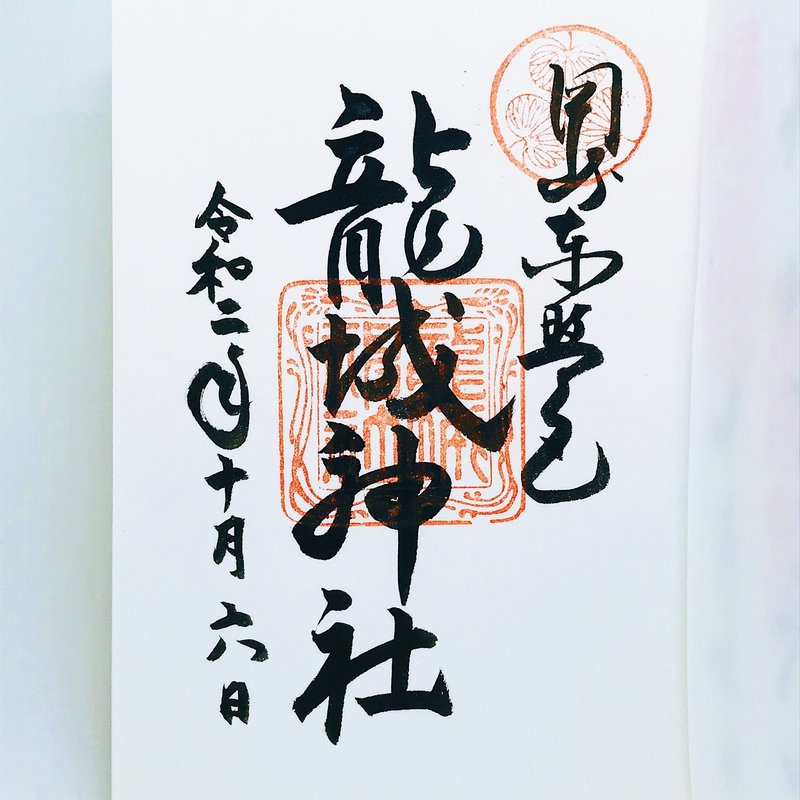 岡崎東照宮
龍城神社
令和二年十月六日